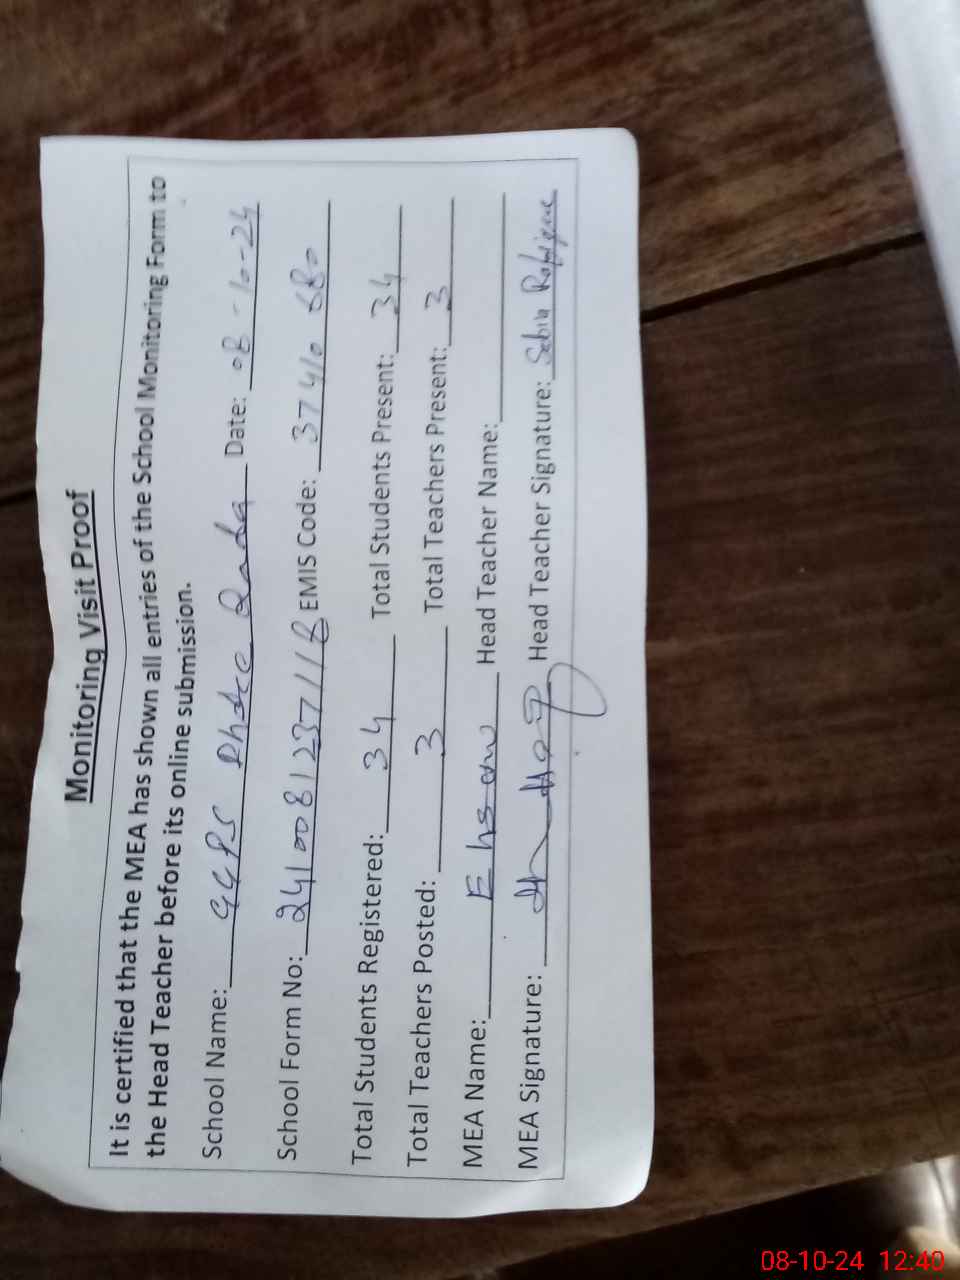 Monitoring Visit Proof
It is certified that the MEA has shown all entries of the School Monitoring Form to
the Head Teacher before its online submission.
School Name: GGPS Dhoke Date: 08-10-24
School Form No: 241008123711 EMIS Code: 37410680
Total Students Registered: 34 Total Students Present: 34
Total Teachers Posted: 3 Total Teachers Present: 3
MEA Name: Ehsan Head Teacher Name:
MEA Signature: Head Teacher Signature: Sabia
08-10-24 12:40